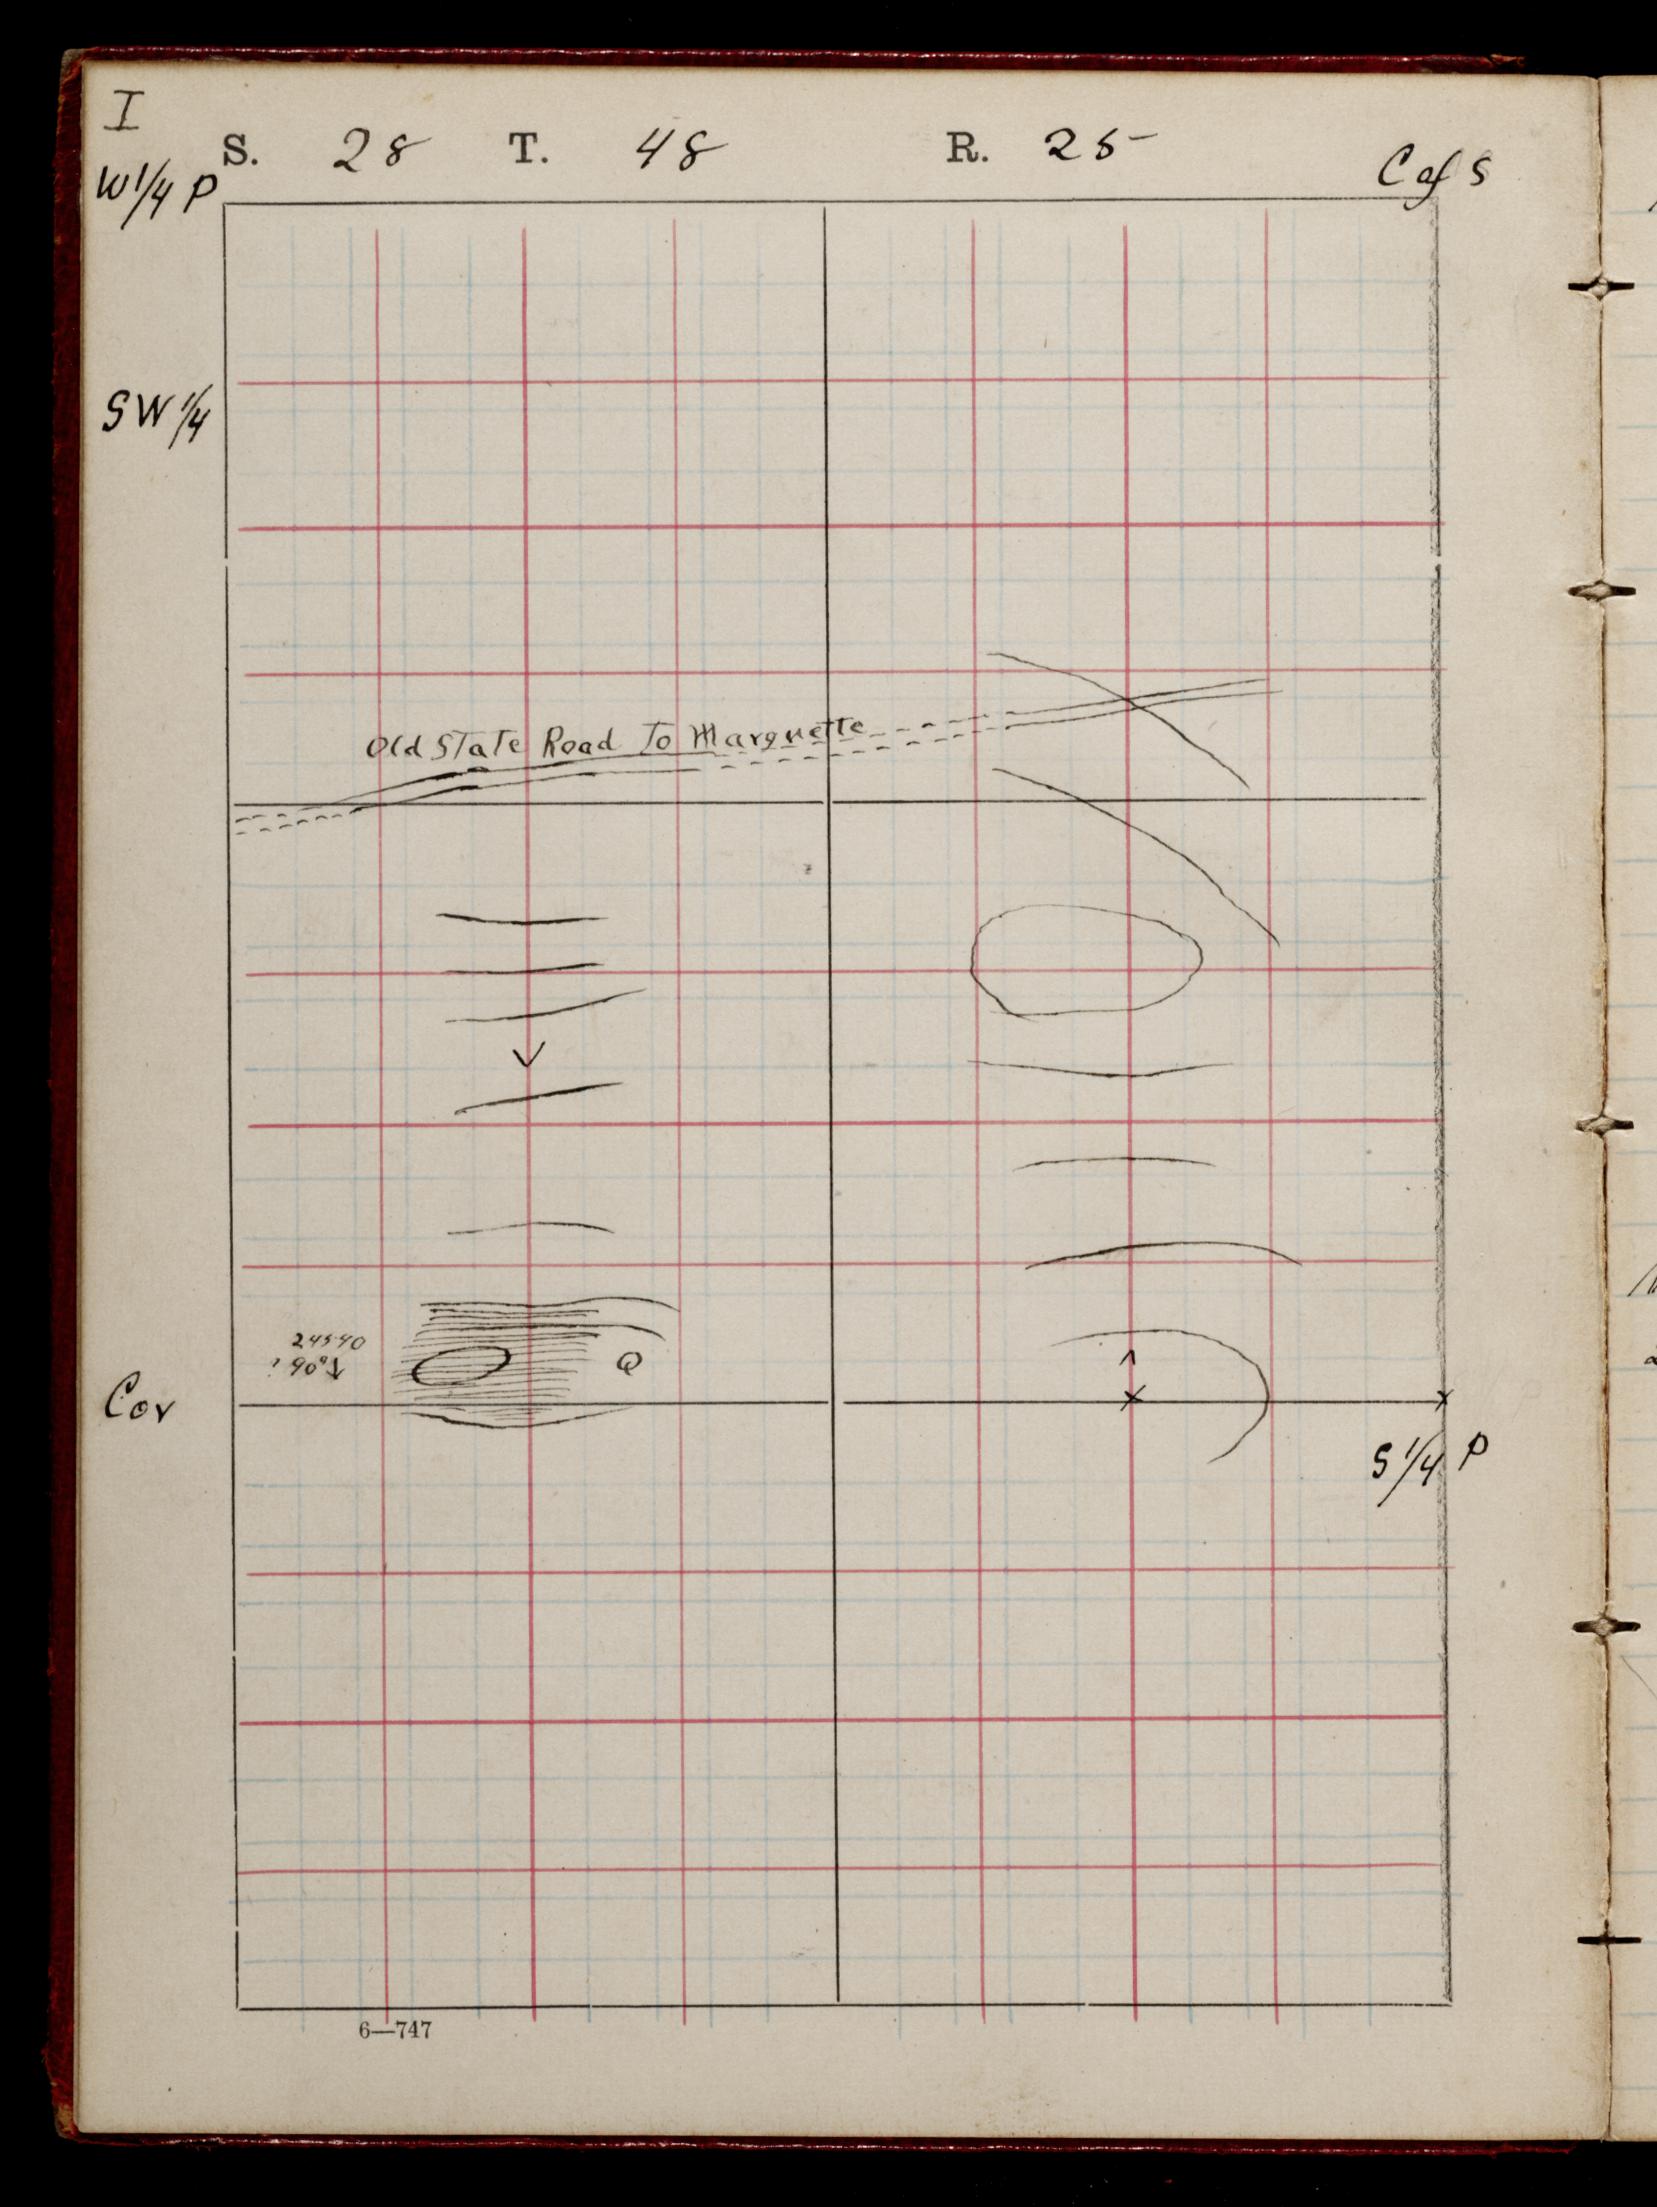 I
S. 28 T. 48 R. 25
W 1/4 P
C of S
SW 1/4
Old State Road To Marquette
24590
? 90°↓
Q
Cor
S 1/4 P
6—747